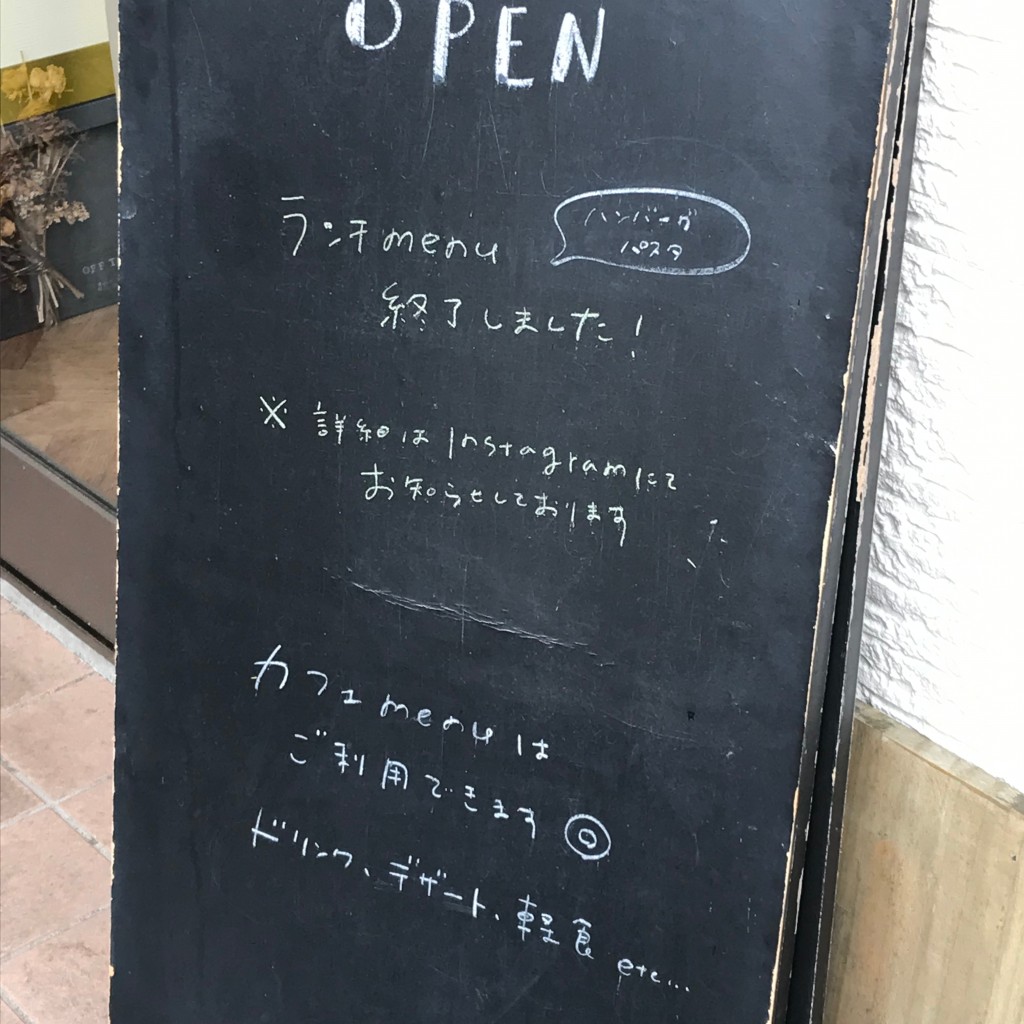 OPEN
ランチmenu
ハンバーグ
パスタ
終了しました!
※ 詳細は Instagramにて
お知らせしております
カフェmenuは
ご利用できます ◎
ドリンク、デザート、軽食 etc...